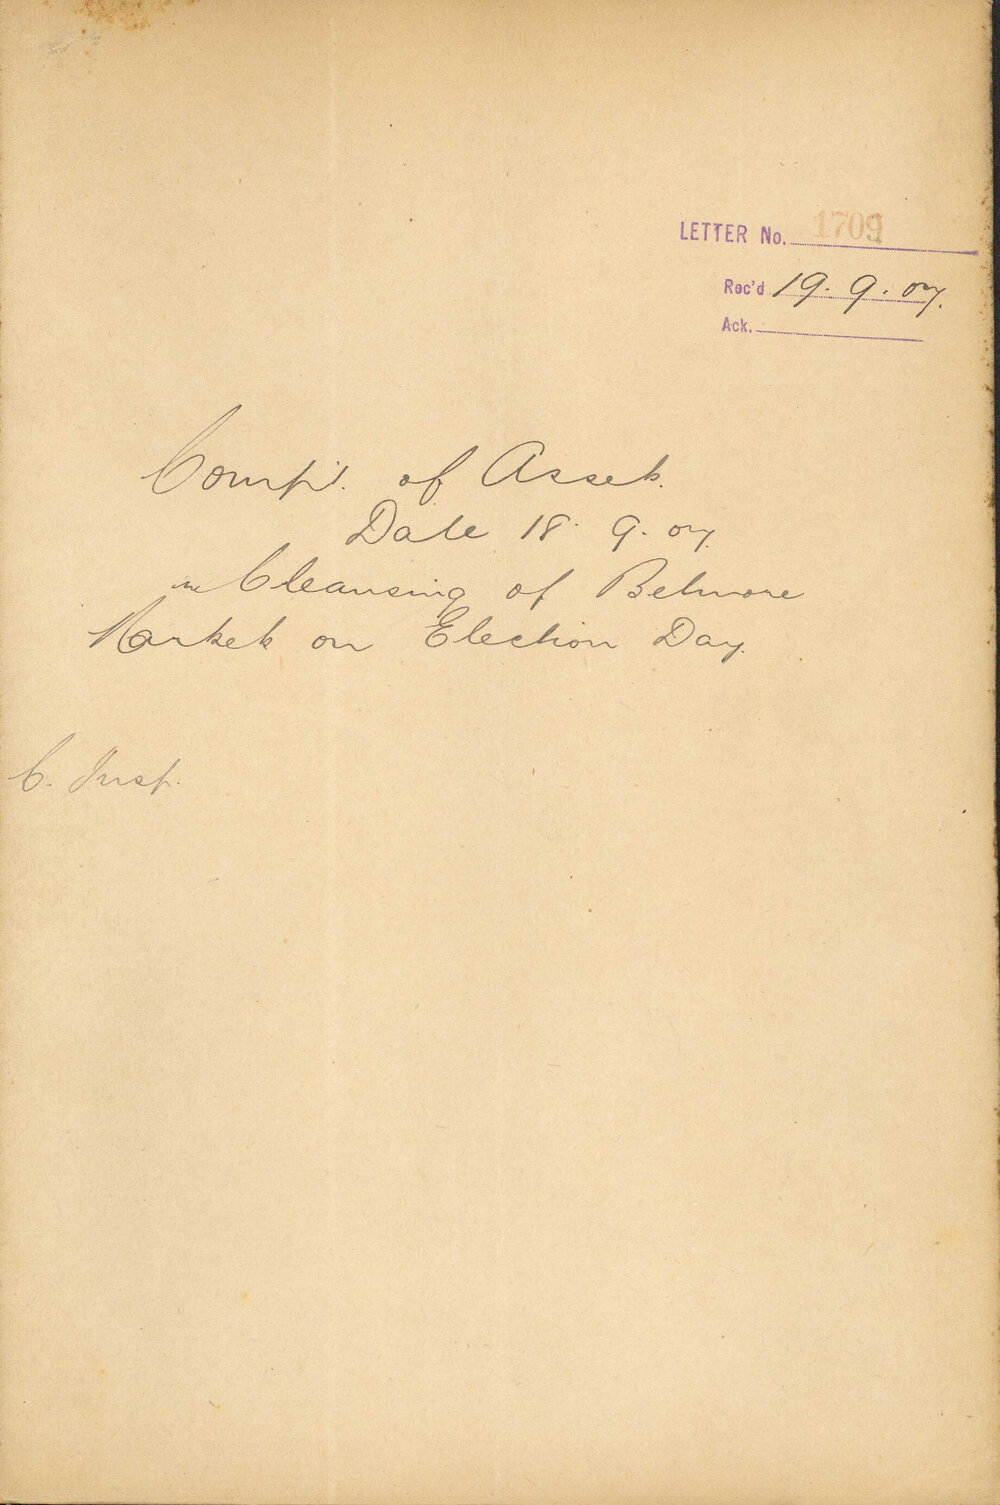 LETTER No. 1709
Rec'd 19.9.07.
Ack.
Compt. of Assets.
Date 18.9.07.
re Cleansing of Belmore
Markets on Election Day.
C. Insp.